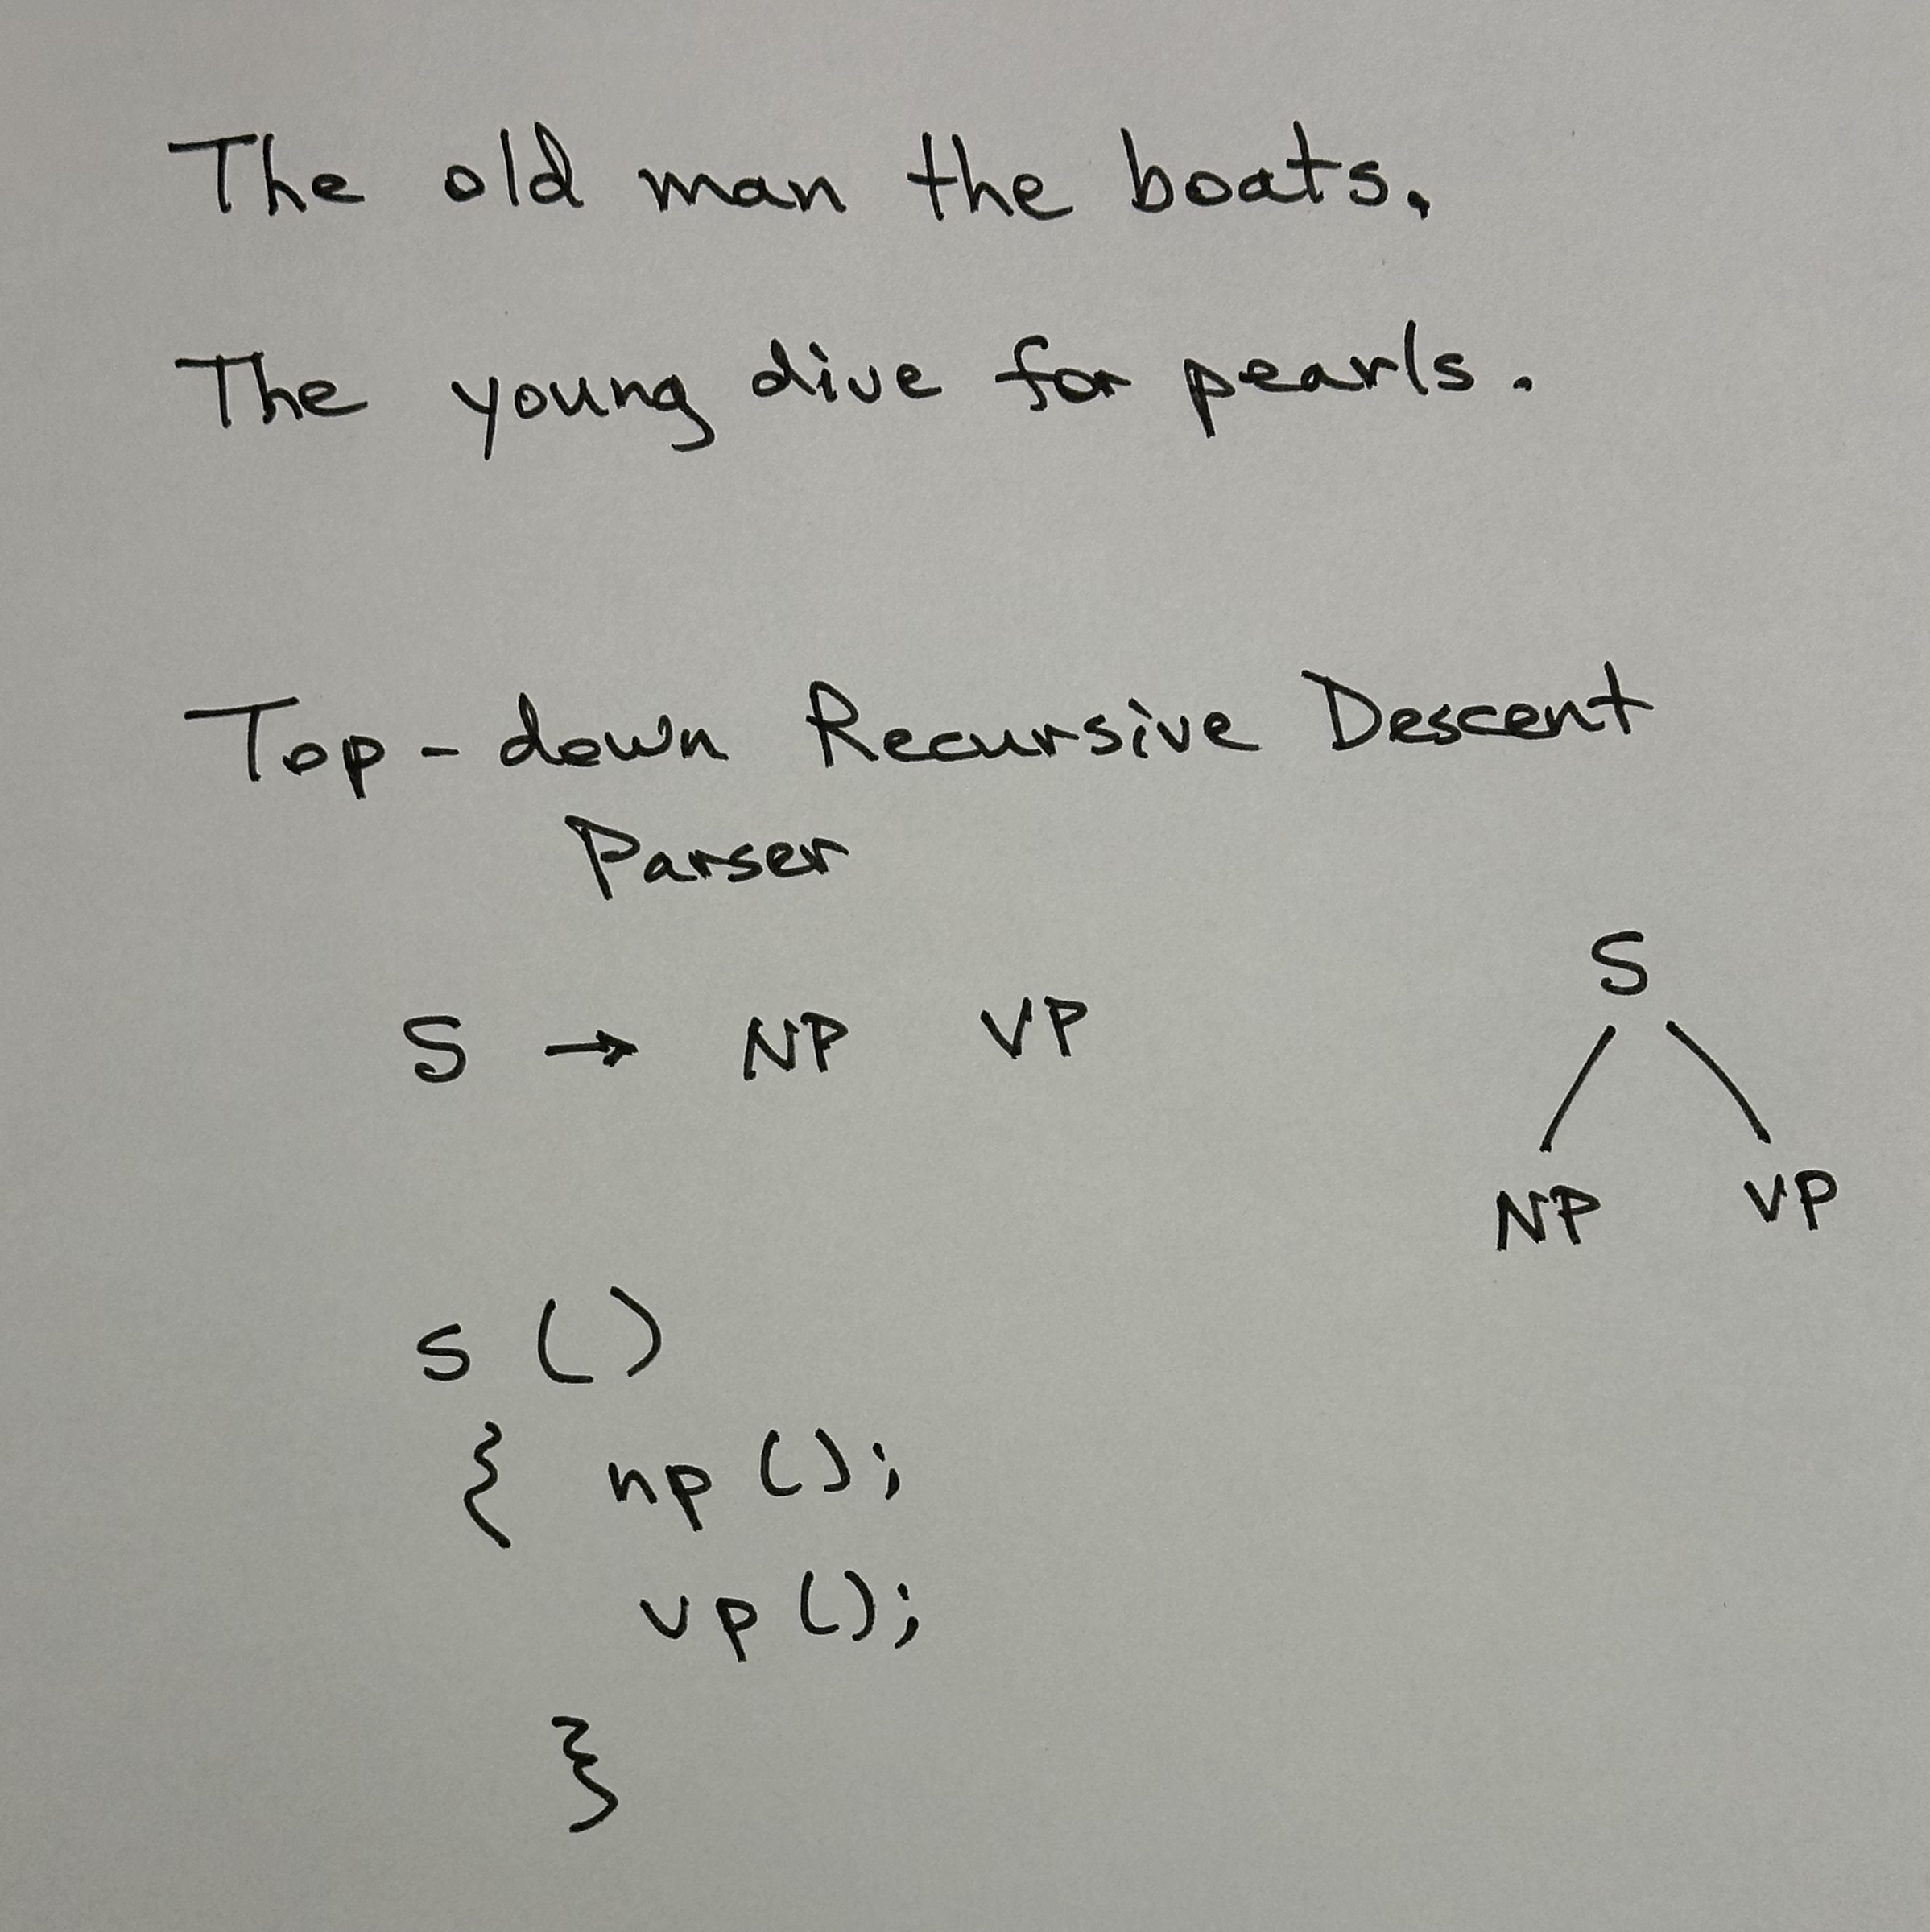 The old man the boats.
The young dive for pearls.
Top-down Recursive Descent
Parser
S → NP VP
S
NP VP
s ()
{ np ();
vp ();
}